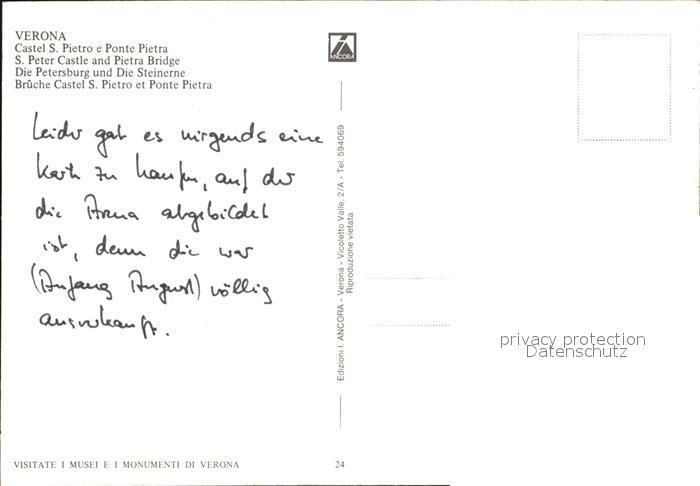 VERONA
Castel S. Pietro e Ponte Pietra
S. Peter Castle and Pietra Bridge
Die Petersburg und Die Steinerne
Brûche Castel S. Pietro et Ponte Pietra
ANCORA
Leider gab es nirgends eine
Karte zu kaufen, auf der
die Arena abgebildet
ist, denn die war
(Anfang August) völlig
ausverkauft.
Edizioni I. ANCORA - Verona - Vicoletto Valle, 2/A - Tel. 594069
Riproduzione vietata
privacy protection
Datenschutz
VISITATE I MUSEI E I MONUMENTI DI VERONA
24